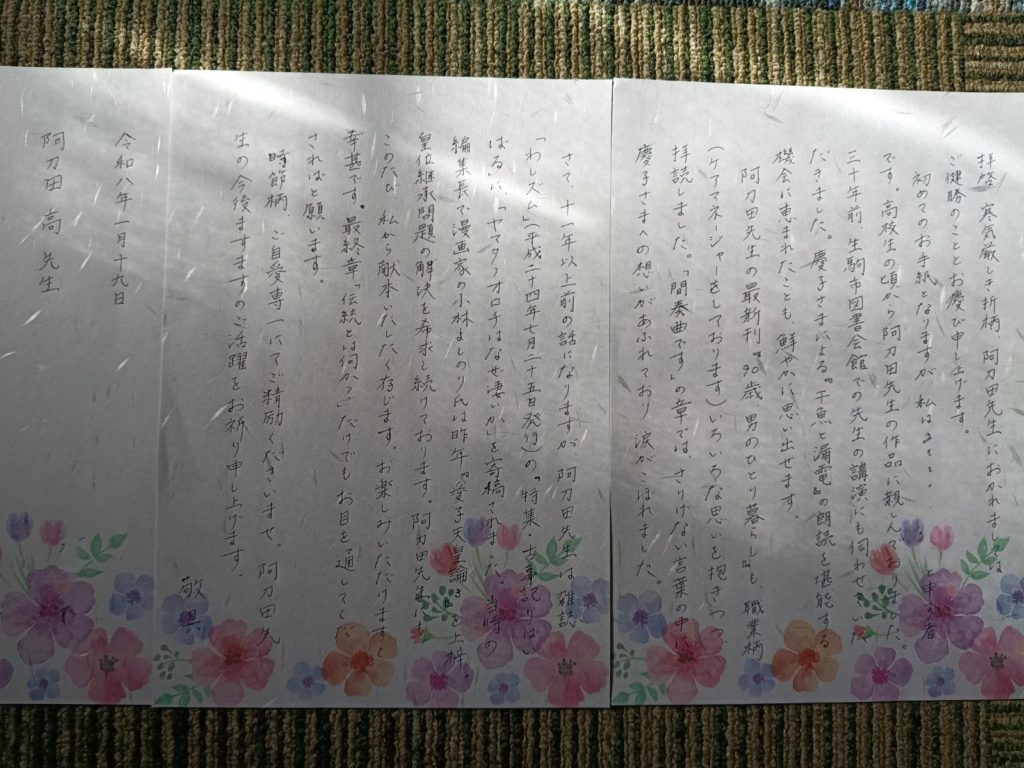 拝啓 寒気厳しき折柄、阿刀田先生におかれましては
ご健勝のこととお慶び申し上げます。
初めてのお手紙となりますが、私は と申す者
です。高校生の頃から阿刀田先生の作品に親しんでおりました。
三十年前、生駒市図書会館での先生の講演にも伺わせていた
だきました。慶子さまによる『干魚と漏電』の朗読を堪能する
機会に恵まれたことも、鮮やかに思い出せます。
阿刀田先生の最新刊『90歳、男のひとり暮らし』も、職業柄
(ケアマネージャーをしております)いろいろな思いを抱きつつ
拝読しました。「間奏曲です」の章では、さりげない言葉の中に
慶子さまへの想いがあふれており、涙がこぼれました。
さて、十一年以上前の話になりますが、阿刀田先生は雑誌
「わしズム」(平成二十四年七月二十五日発行)の『特集・古事記りばい
ばる』に「ヤマタノオロチはなぜ凄いか」を寄稿されました。当時の
編集長で漫画家の小林よしのり氏は昨年『愛子天皇論3』を上梓。
皇位継承問題の解決を希求し続けております。阿刀田先生にも
このたび、私から献本いたしたく存じます。お楽しみいただけますと
幸甚です。最終章「伝統とは何か?」だけでもお目を通してくだ
さればと願います。
時節柄、ご自愛専一にてご精励くださいませ。阿刀田先
生の今後ますますのご活躍をお祈り申し上げます。
敬具
令和八年一月十九日
阿刀田 高 先生